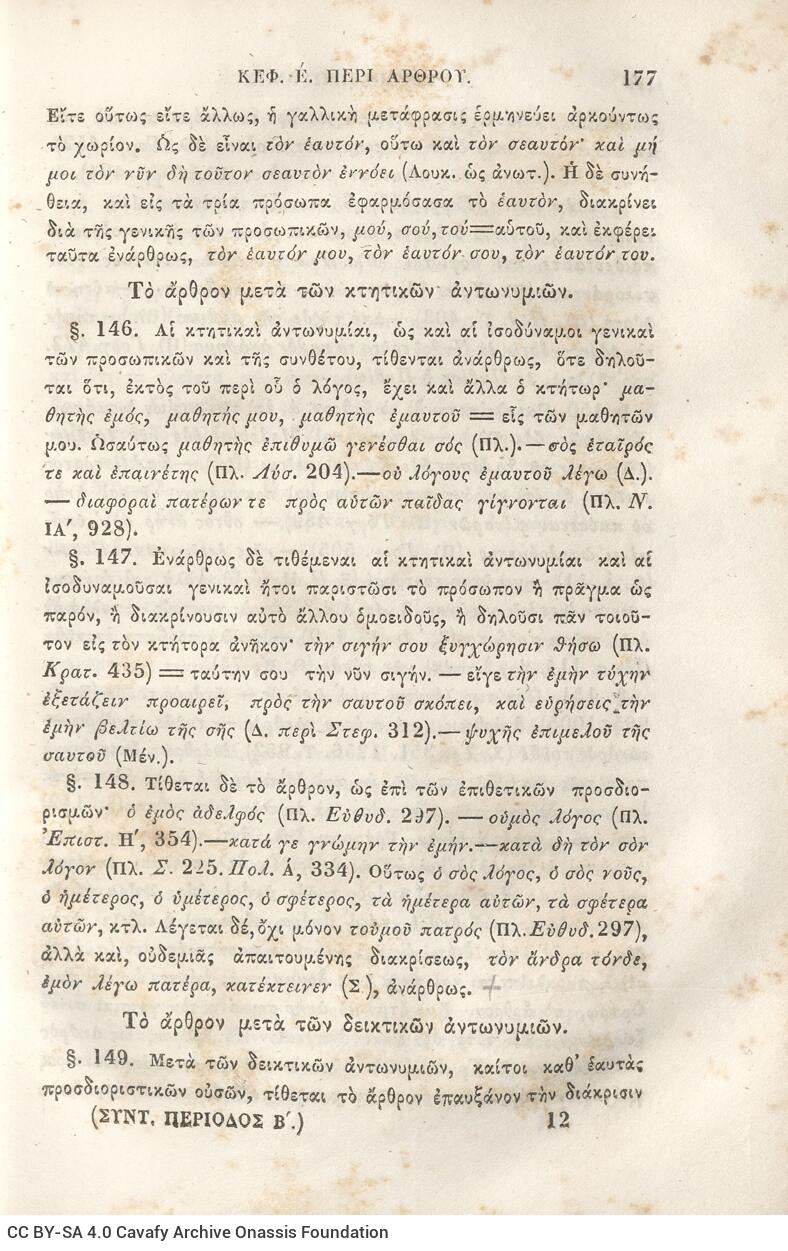 ΚΕΦ. Έ. ΠΕΡΙ ΑΡΘΡΟΥ. 177
Εἴτε οὕτως εἴτε ἄλλως, ἡ γαλλικὴ μετάφρασις ἑρμηνεύει ἀρκούντως
τὸ χωρίον. Ὡς δὲ εἶναι τὸν ἑαυτόν, οὕτω καὶ τὸν σεαυτόν· καὶ μή
μοι τὸν νῦν δὴ τοῦτον σεαυτὸν ἐννόει (Λουκ. ὡς ἀνωτ.). Ἡ δὲ συνή-
θεια, καὶ εἰς τὰ τρία πρόσωπα ἐφαρμόσασα τὸ ἑαυτὸν, διακρίνει
διὰ τῆς γενικῆς τῶν προσωπικῶν, μού, σού, τού=αὑτοῦ, καὶ ἐκφέρει
ταῦτα ἐνάρθρως, τὸν ἑαυτόν μου, τὸν ἑαυτόν σου, τὸν ἑαυτόν του.
Τὸ ἄρθρον μετὰ τῶν κτητικῶν ἀντωνυμιῶν.
§. 146. Αἱ κτητικαὶ ἀντωνυμίαι, ὡς καὶ αἱ ἰσοδύναμοι γενικαὶ
τῶν προσωπικῶν καὶ τῆς συνθέτου, τίθενται ἀνάρθρως, ὅτε δηλοῦ-
ται ὅτι, ἐκτὸς τοῦ περὶ οὗ ὁ λόγος, ἔχει καὶ ἄλλα ὁ κτήτωρ· μα-
θητὴς ἐμός, μαθητής μου, μαθητὴς ἐμαυτοῦ = εἷς τῶν μαθητῶν
μου. Ὡσαύτως μαθητὴς ἐπιθυμῶ γενέσθαι σός (Πλ.).—σὸς ἑταῖρός
τε καὶ ἐπαινέτης (Πλ. Λύσ. 204).—οὐ λόγους ἐμαυτοῦ λέγω (Δ.).
— διαφοραὶ πατέρων τε πρὸς αὑτῶν παῖδας γίγνονται (Πλ. Ν.
ΙΑ′, 928).
§. 147. Ἐνάρθρως δὲ τιθέμεναι αἱ κτητικαὶ ἀντωνυμίαι καὶ αἱ
ἰσοδυναμοῦσαι γενικαὶ ἤτοι παριστῶσι τὸ πρόσωπον ἢ πρᾶγμα ὡς
παρόν, ἢ διακρίνουσιν αὐτὸ ἄλλου ὁμοειδοῦς, ἢ δηλοῦσι πᾶν τοιοῦ-
τον εἰς τὸν κτήτορα ἀνῆκον· τὴν σιγήν σου ξυγχώρησιν θήσω (Πλ.
Κρατ. 435) = ταύτην σου τὴν νῦν σιγήν. — εἴγε τὴν ἐμὴν τύχην
ἐξετάζειν προαιρεῖ, πρὸς τὴν σαυτοῦ σκόπει, καὶ εὑρήσεις τὴν
ἐμὴν βελτίω τῆς σῆς (Δ. περὶ Στεφ. 312).— ψυχῆς ἐπιμελοῦ τῆς
σαυτοῦ (Μέν.).
§. 148. Τίθεται δὲ τὸ ἄρθρον, ὡς ἐπὶ τῶν ἐπιθετικῶν προσδιο-
ρισμῶν· ὁ ἐμὸς ἀδελφός (Πλ. Εὐθυδ. 297). — οὑμὸς λόγος (Πλ.
Ἐπιστ. Η′, 354).—κατά γε γνώμην τὴν ἐμήν.—κατὰ δὴ τὸν σὸν
λόγον (Πλ. Σ. 225. Πολ. Ά, 334). Οὕτως ὁ σὸς λόγος, ὁ σὸς νοῦς,
ὁ ἡμέτερος, ὁ ὑμέτερος, ὁ σφέτερος, τὰ ἡμέτερα αὐτῶν, τὰ σφέτερα
αὐτῶν, κτλ. Λέγεται δέ, ὄχι μόνον τοὐμοῦ πατρός (Πλ. Εὐθυδ. 297),
ἀλλὰ καὶ, οὐδεμιᾶς ἀπαιτουμένης διακρίσεως, τὸν ἄνδρα τόνδε,
ἐμὸν λέγω πατέρα, κατέκτεινεν (Σ), ἀνάρθρως. +
Τὸ ἄρθρον μετὰ τῶν δεικτικῶν ἀντωνυμιῶν.
§. 149. Μετὰ τῶν δεικτικῶν ἀντωνυμιῶν, καίτοι καθ’ ἑαυτὰς
προσδιοριστικῶν οὐσῶν, τίθεται τὸ ἄρθρον ἐπαυξάνον τὴν διάκρισιν
(ΣΥΝΤ. ΠΕΡΙΟΔΟΣ Β′.) 12
CC BY-SA 4.0 Cavafy Archive Onassis Foundation